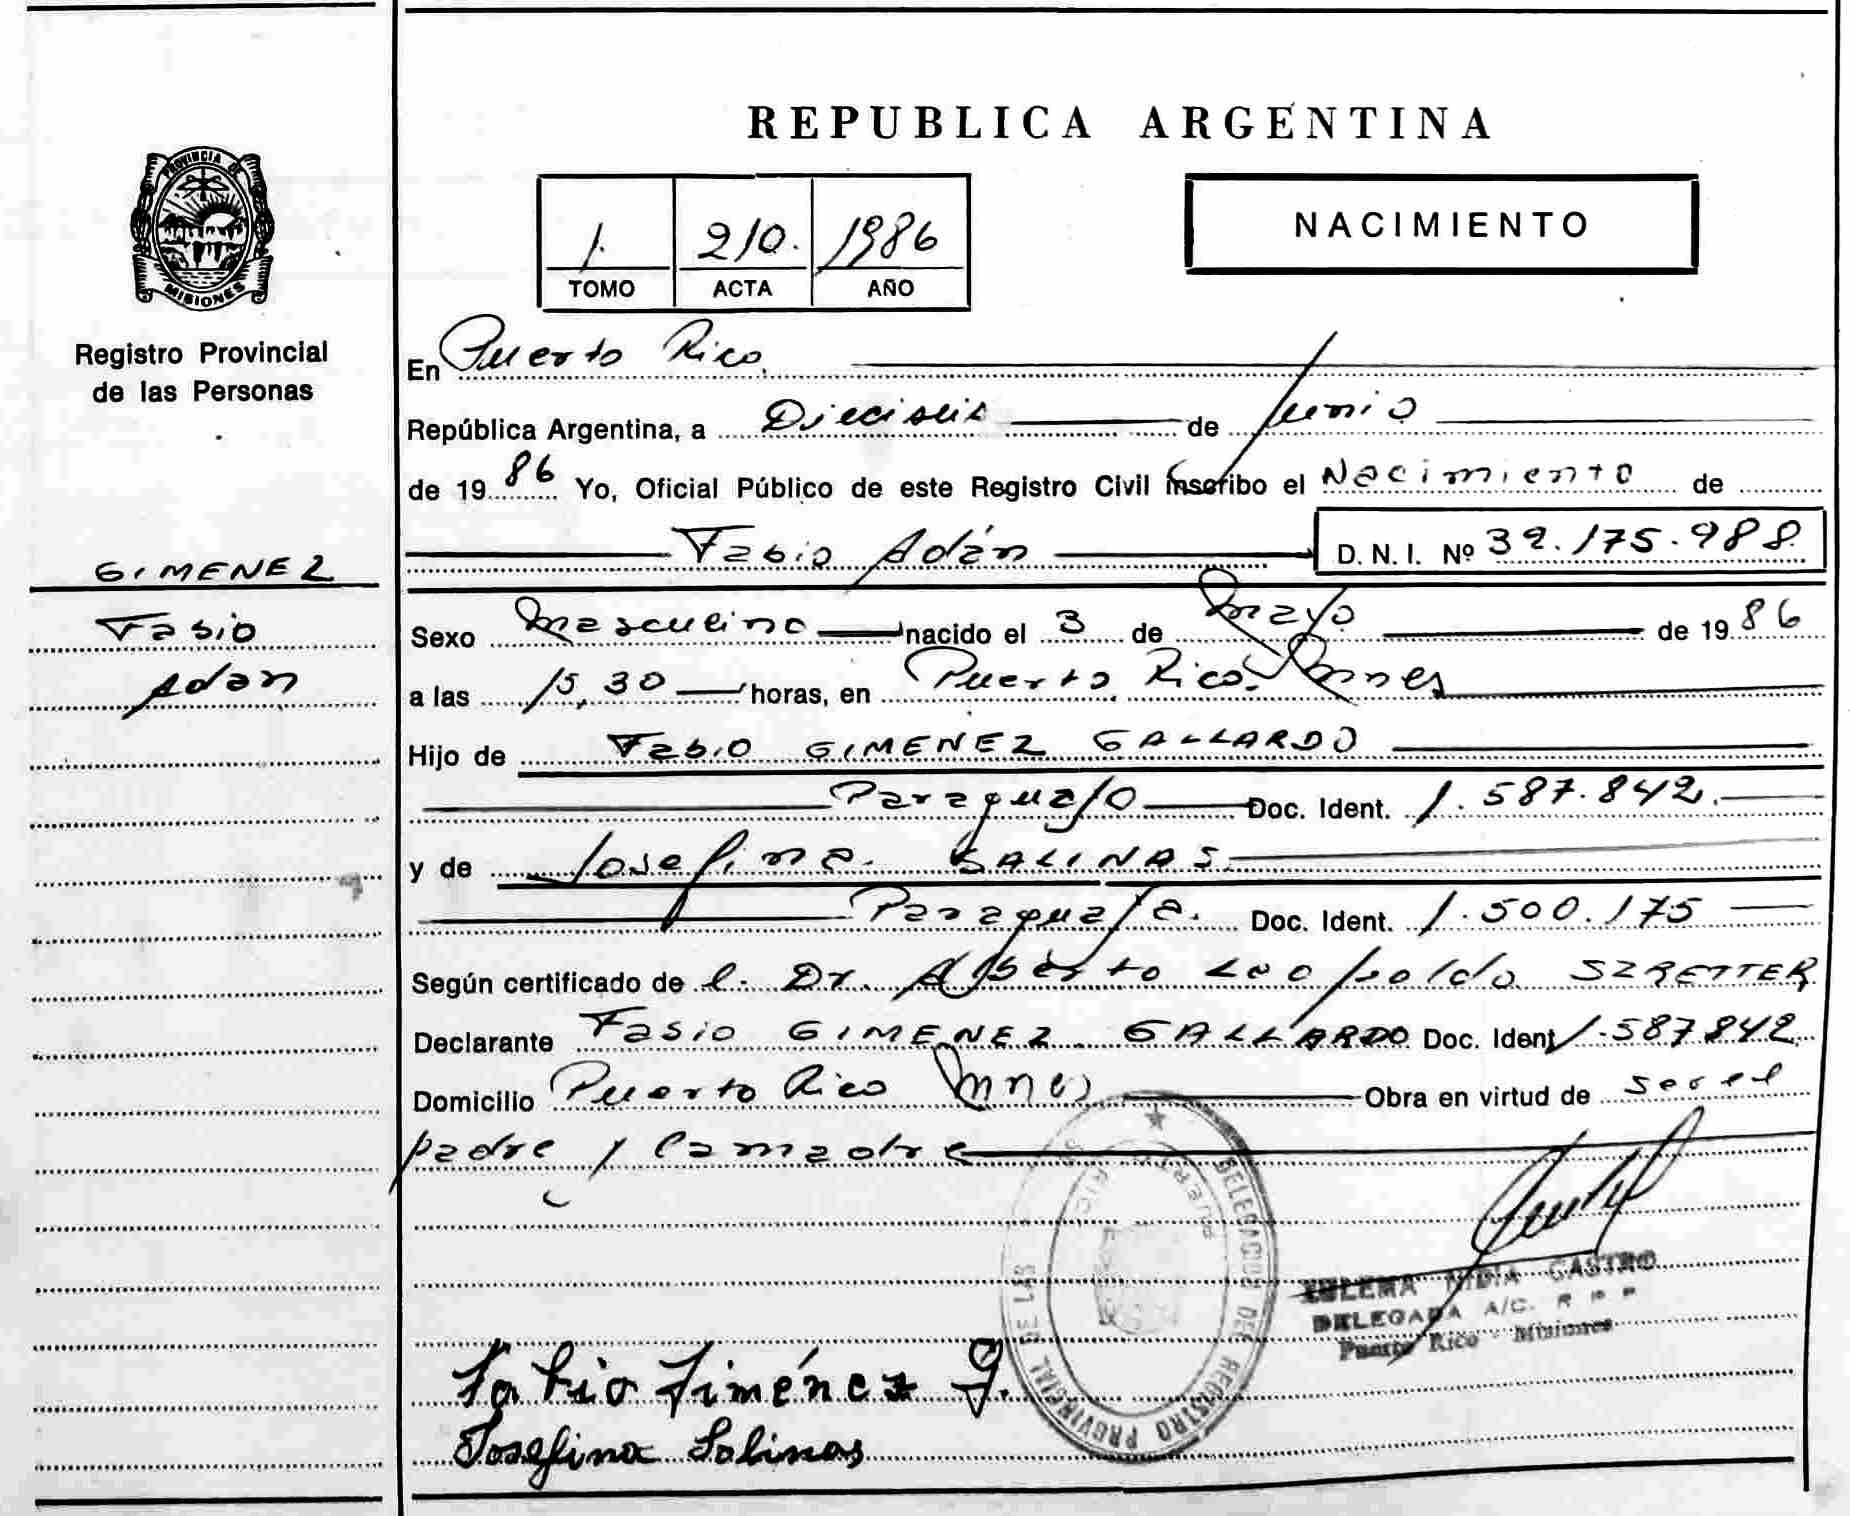 REPUBLICA ARGENTINA
PROVINCIA DE
MISIONES
Registro Provincial
de las Personas
GIMENEZ
Fabio
Adan
1. 210. 1986
TOMO ACTA AÑO
NACIMIENTO
En Puerto Rico,
República Argentina, a Dieciseis de Junio
de 1986 Yo, Oficial Público de este Registro Civil inscribo el Nacimiento de
Fabio Adán D. N. I. Nº 32.175.988
Sexo Masculino nacido el 3 de Mayo de 1986
a las 15,30 horas, en Puerto Rico. Mnes
Hijo de Fabio GIMENEZ GALLARDO
Paraguayo Doc. Ident. 1.587.842.
y de Josefina SALINAS
Paraguaya. Doc. Ident. 1.500.175
Según certificado de l. Dr. Alberto Leopoldo SZRETTER
Declarante Fabio GIMENEZ GALLARDO Doc. Ident 1.587842
Domicilio Puerto Rico Mnes Obra en virtud de ser el
padre y la madre
DELEGACION DEL REGISTRO PROVINCIAL DE LAS
PUERTO RICO
NIDIA CASTRO
DELEGADA A/C. R P P
Puerto Rico - Misiones
Fabio Jiménez G.
Josefina Salinas